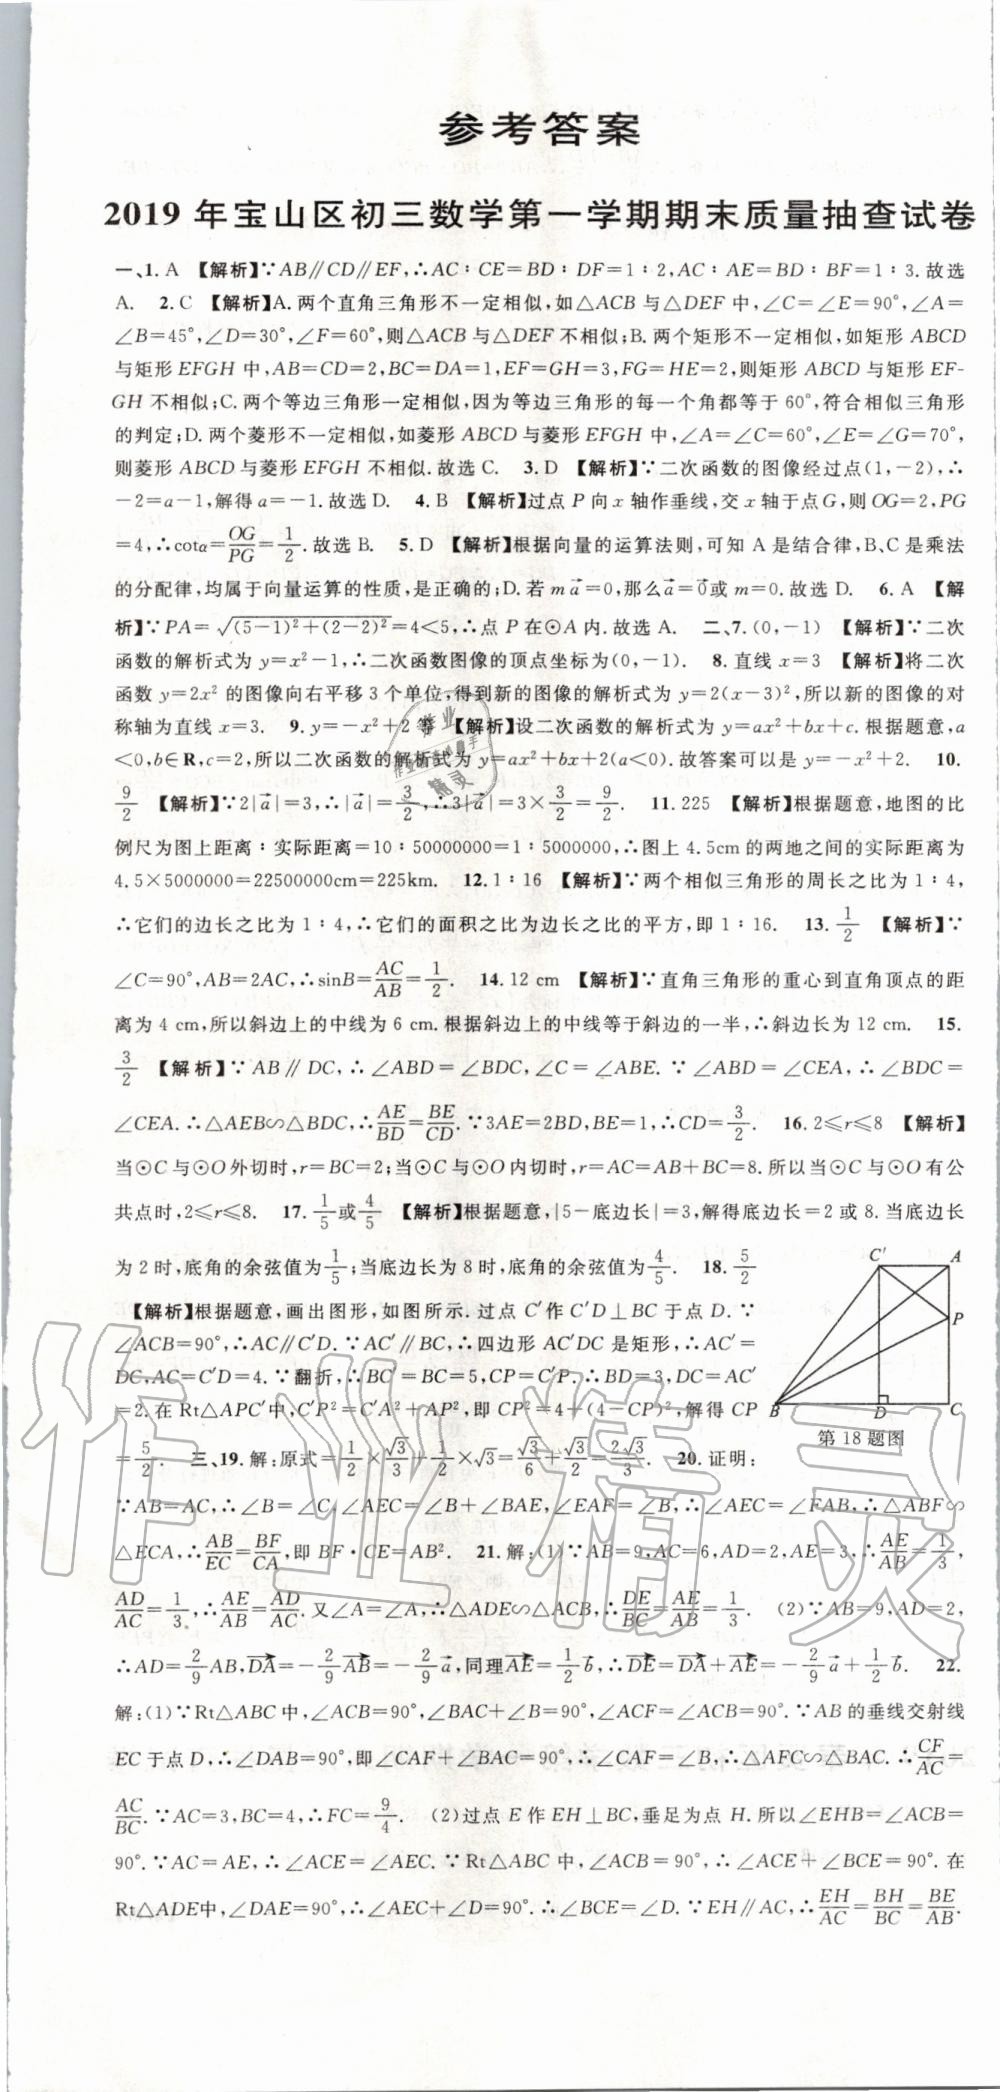 参考答案
2019 年宝山区初三数学第一学期期末质量抽查试卷
一、1. A 【解析】∵AB∥CD∥EF,∴AC∶CE=BD∶DF=1∶2,AC∶AE=BD∶BF=1∶3.故选
A. 2. C 【解析】A.两个直角三角形不一定相似,如△ACB与△DEF中,∠C=∠E=90°,∠A=
∠B=45°,∠D=30°,∠F=60°,则△ACB与△DEF不相似;B.两个矩形不一定相似,如矩形 ABCD
与矩形 EFGH 中,AB=CD=2,BC=DA=1,EF=GH=3,FG=HE=2,则矩形 ABCD 与矩形 EF-
GH 不相似;C.两个等边三角形一定相似,因为等边三角形的每一个角都等于60°,符合相似三角形
的判定;D.两个菱形不一定相似,如菱形 ABCD 与菱形 EFGH 中,∠A=∠C=60°,∠E=∠G=70°,
则菱形 ABCD 与菱形 EFGH 不相似.故选 C. 3. D 【解析】∵二次函数的图像经过点(1,-2),∴
-2=a-1,解得 a=-1.故选 D. 4. B 【解析】过点 P 向 x 轴作垂线,交 x 轴于点 G,则 OG=2,PG
=4,∴cotα=OG/PG=1/2.故选 B. 5. D 【解析】根据向量的运算法则,可知 A 是结合律,B、C 是乘法
的分配律,均属于向量运算的性质,是正确的;D.若 m a⃗=0,那么a⃗=0⃗或m=0.故选 D. 6. A 【解
析】∵PA=√((5-1)²+(2-2)²)=4<5,∴点 P 在⊙A 内.故选 A. 二、7. (0,-1) 【解析】∵二次
函数的解析式为 y=x²-1,∴二次函数图像的顶点坐标为(0,-1). 8. 直线 x=3 【解析】将二次
函数 y=2x² 的图像向右平移 3 个单位,得到新的图像的解析式为 y=2(x-3)²,所以新的图像的对
称轴为直线 x=3. 9. y=-x²+2 等 【解析】设二次函数的解析式为 y=ax²+bx+c.根据题意,a
<0,b∈R,c=2,所以二次函数的解析式为 y=ax²+bx+2(a<0).故答案可以是 y=-x²+2. 10.
9/2 【解析】∵2|a⃗|=3,∴|a⃗|=3/2,∴3|a⃗|=3×3/2=9/2. 11. 225 【解析】根据题意,地图的比
例尺为图上距离∶实际距离=10∶50000000=1∶5000000,∴图上 4.5cm 的两地之间的实际距离为
4.5×5000000=22500000cm=225km. 12. 1∶16 【解析】∵两个相似三角形的周长之比为 1∶4,
∴它们的边长之比为 1∶4,∴它们的面积之比为边长之比的平方,即 1∶16. 13. 1/2 【解析】∵
∠C=90°,AB=2AC,∴sinB=AC/AB=1/2. 14. 12 cm 【解析】∵直角三角形的重心到直角顶点的距
离为 4 cm,所以斜边上的中线为 6 cm.根据斜边上的中线等于斜边的一半,∴斜边长为 12 cm. 15.
3/2 【解析】∵AB∥DC,∴∠ABD=∠BDC,∠C=∠ABE.∵∠ABD=∠CEA,∴∠BDC=
∠CEA.∴△AEB∽△BDC,∴AE/BD=BE/CD.∵3AE=2BD,BE=1,∴CD=3/2. 16. 2≤r≤8 【解析】
当⊙C 与⊙O 外切时,r=BC=2;当⊙C 与⊙O 内切时,r=AC=AB+BC=8.所以当⊙C 与⊙O 有公
共点时,2≤r≤8. 17. 1/5或4/5 【解析】根据题意,|5-底边长|=3,解得底边长=2 或 8.当底边长
为 2 时,底角的余弦值为1/5;当底边长为 8 时,底角的余弦值为4/5. 18. 5/2
【解析】根据题意,画出图形,如图所示.过点 C′作 C′D⊥BC 于点 D.∵
∠ACB=90°,∴AC∥C′D.∵AC′∥BC,∴四边形 AC′DC 是矩形,∴AC′=
DC,AC=C′D=4.∵翻折,∴BC′=BC=5,CP=C′P,∴BD=3,DC=AC′
=2.在 Rt△APC′中,C′P²=C′A²+AP²,即 CP²=4+(4-CP)²,解得 CP
=5/2. 三、19. 解:原式=1/2×√3/3+1/2×√3=√3/6+√3/2=2√3/3. 20. 证明:
∵AB=AC,∴∠B=∠C,∠AEC=∠B+∠BAE,∠EAF=∠B,∴∠AEC=∠FAB,∴△ABF∽
△ECA,∴AB/EC=BF/CA,即 BF·CE=AB². 21. 解:(1)∵AB=9,AC=6,AD=2,AE=3,∴AE/AB=1/3,
AD/AC=1/3,∴AE/AB=AD/AC.又∠A=∠A,∴△ADE∽△ACB,∴DE/BC=AE/AB=1/3. (2)∵AB=9,AD=2,
∴AD=2/9AB,DA⃗=-2/9AB⃗=-2/9a⃗,同理AE⃗=1/2b⃗,∴DE⃗=DA⃗+AE⃗=-2/9a⃗+1/2b⃗. 22.
解:(1)∵Rt△ABC 中,∠ACB=90°,∠BAC+∠B=90°,∠ACF=∠ACB=90°.∵AB 的垂线交射线
EC 于点 D,∴∠DAB=90°,即∠CAF+∠BAC=90°.∴∠CAF=∠B,∴△AFC∽△BAC.∴CF/AC=
AC/BC.∵AC=3,BC=4,∴FC=9/4. (2)过点 E 作 EH⊥BC,垂足为点 H.所以∠EHB=∠ACB=
90°.∵AC=AE,∴∠ACE=∠AEC.∵Rt△ABC 中,∠ACB=90°,∴∠ACE+∠BCE=90°.在
Rt△ADE中,∠DAE=90°,∴∠AEC+∠D=90°.∴∠BCE=∠D.∵EH∥AC,∴EH/AC=BH/BC=BE/AB.
C′
A
P
B
D
C
第 18 题图
作业精灵